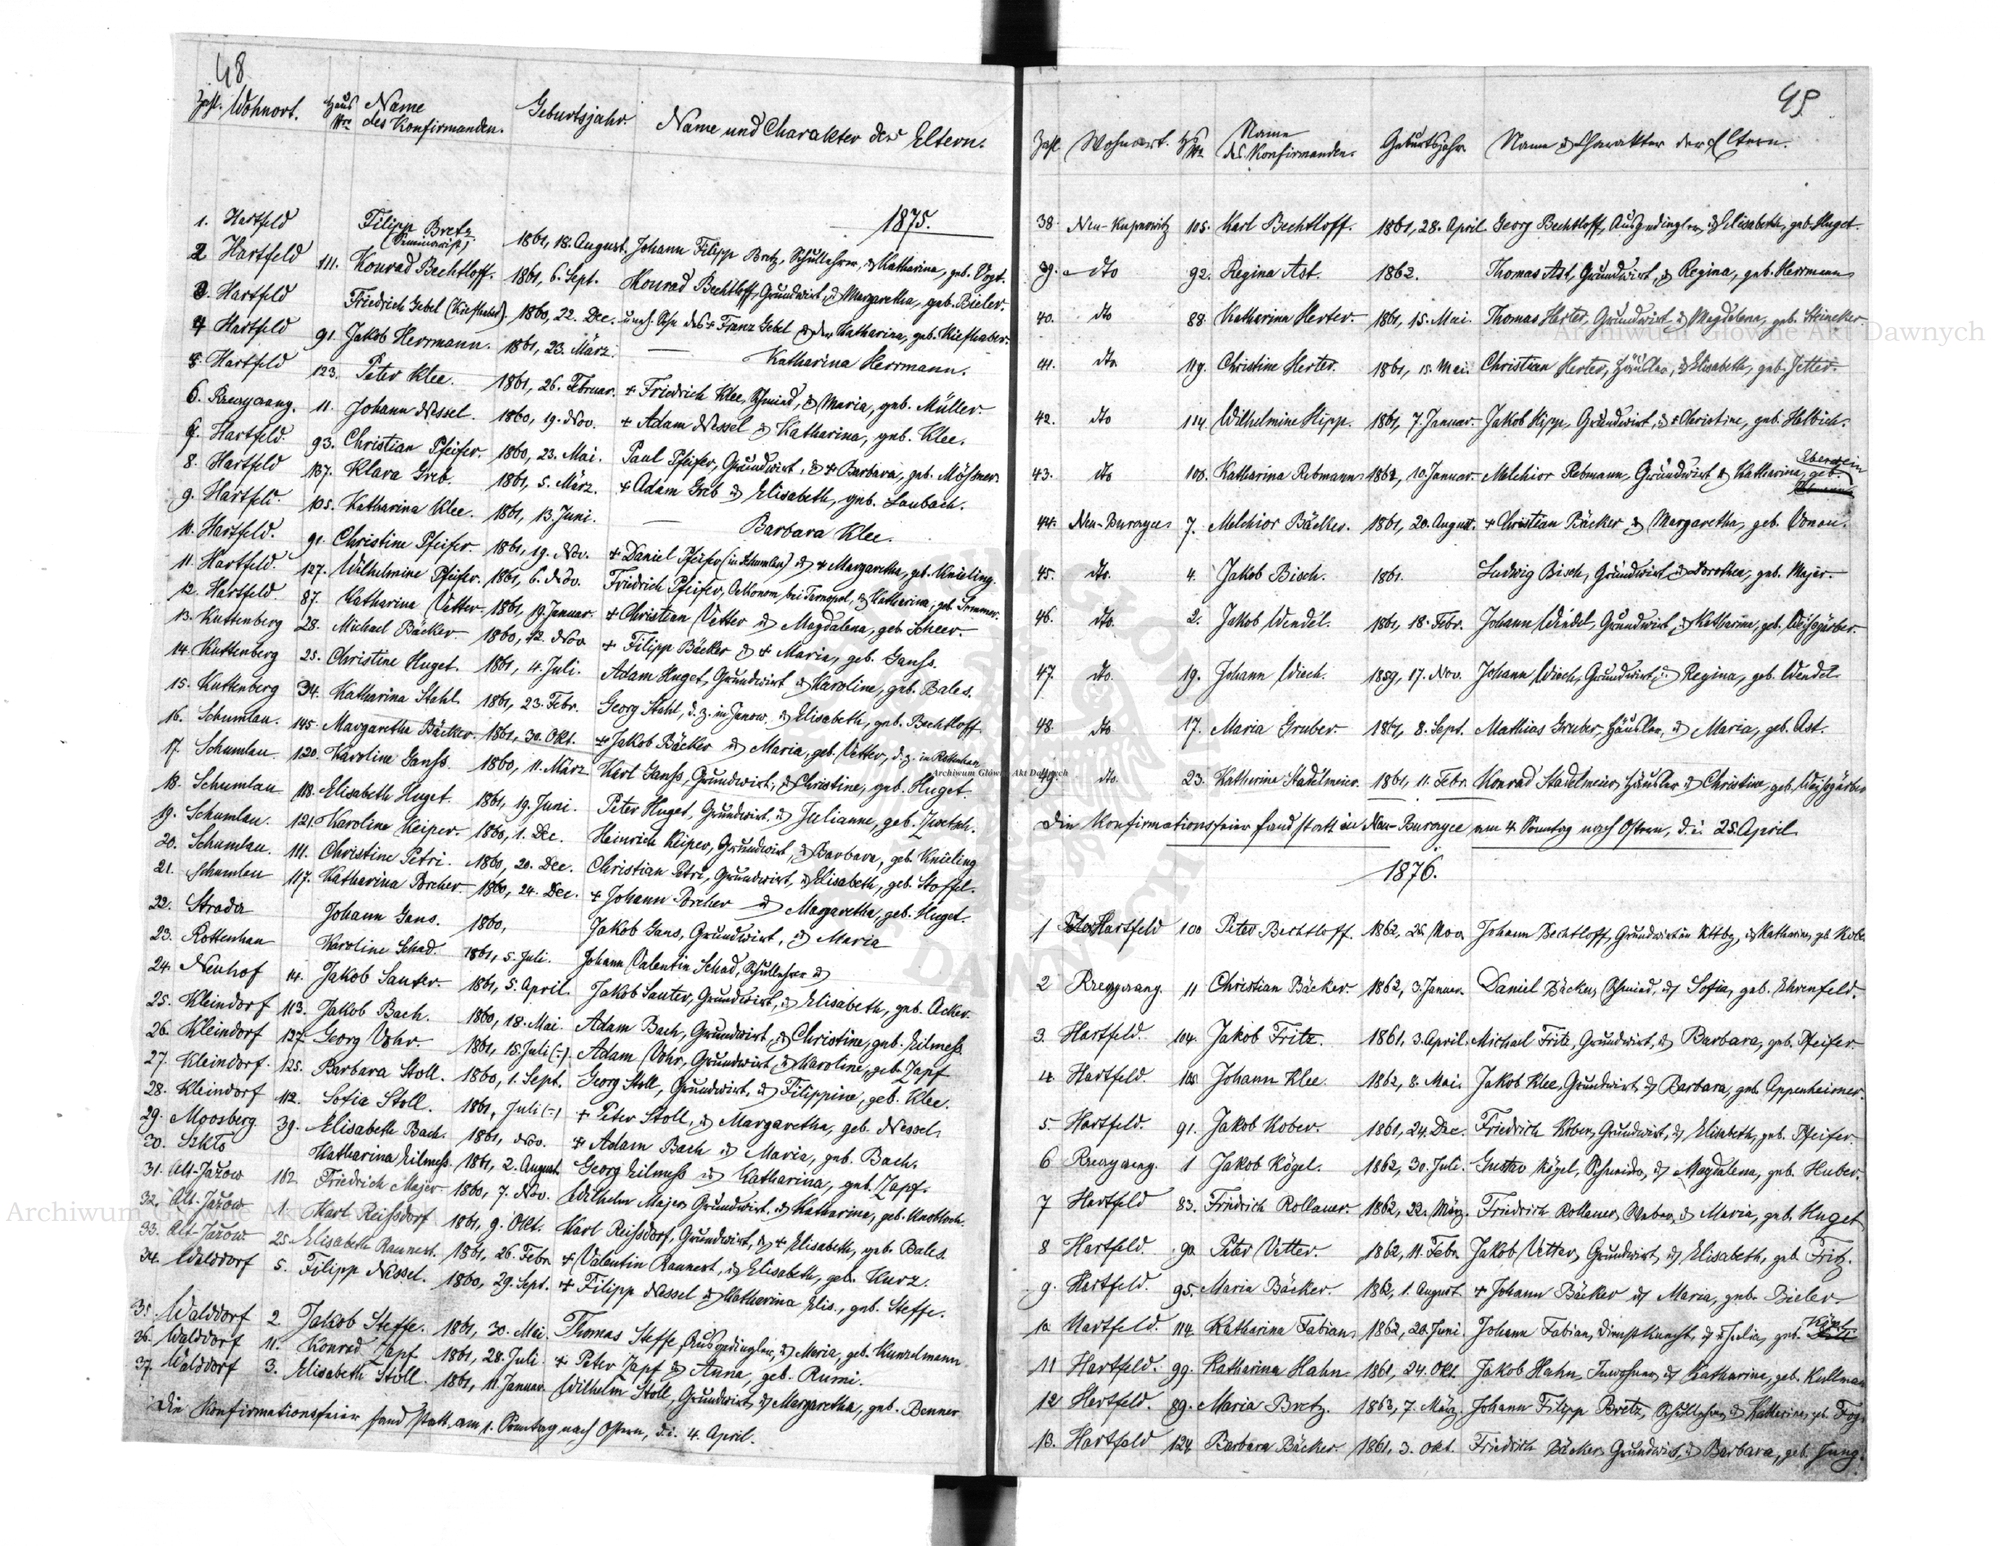 48
Zahl. Wohnort. Haus Nro Name des Konfirmanden. Geburtsjahr. Name und Charakter der Eltern.
1875.
1. Hartfeld Filipp Bretz (Seminarist) 1861, 18. August. Johann Filipp Bretz, Schullehrer, u. Katharina, geb. Vogt.
2. Hartfeld 111. Konrad Bechtloff. 1861, 6. Sept. Konrad Bechtloff, Grundwirt, u. Margaretha, geb. Bieler.
3. Hartfeld Friedrich Gebel (Kiefhaber). 1860, 22. Dec. uneh. Sohn des + Franz Gebel u. der Katharina, geb. Kiefhaber.
4. Hartfeld 91. Jakob Herrmann. 1861, 23. März. — Katharina Herrmann.
5. Hartfeld 123. Peter Klee. 1861, 26. Februar. + Friedrich Klee, Schmied, u. Maria, geb. Müller
6. 11. Johann Nessel. 1860, 19. Nov. + Adam Nessel u. Katharina, geb. Klee.
7. Hartfeld. 93. Christian Pfeifer. 1860, 23. Mai. Paul Pfeifer, Grundwirt, u. + Barbara, geb. Mößner.
8. Hartfeld 137. Klara Greb. 1861, 5. März. + Adam Greb u. Elisabeth, geb. Laubach.
9. Hartfeld. 105. Katharina Klee. 1861, 13. Juni. — Barbara Klee.
10. Hartfeld. 91. Christine Pfeifer. 1861, 19. Nov. + Daniel Pfeifer (in Schumlau) u. + Margaretha, geb. Knieling.
11. Hartfeld. 127. Wilhelmine Pfeifer. 1861, 6. Nov. Friedrich Pfeifer, Oekonom bei Tarnopol, u. Katharina, geb. Sommer.
12. Hartfeld 87. Katharina Vetter. 1861, 19. Januar. + Christian Vetter u. Magdalena, geb. Scheer.
13. Kuttenberg 28. Michael Bäcker. 1860, 12. Nov. + Filipp Bäcker u. + Maria, geb. Ganß.
14. Kuttenberg 25. Christine Huget. 1861, 4. Juli. Adam Huget, Grundwirt u. Karoline, geb. Bales.
15. Kuttenberg 34. Katharina Stahl. 1861, 23. Febr. Georg Stahl, d. z. in Janow, u. Elisabeth, geb. Bechtloff
16. Schumlau. 145. Margaretha Bäcker. 1861, 30. Okt. + Jakob Bäcker u. Maria, geb. Vetter, d. z. in Rottenhan
17. Schumlau 120. Karoline Ganß. 1860, 11. März Karl Ganß, Grundwirt, u. Christine, geb. Huget.
18. Schumlau 118. Elisabeth Huget. 1861, 19. Juni. Peter Huget, Grundwirt, u. Julianne, geb. Zwetsch.
19. Schumlau. 121. Karoline Keiper. 1860, 1. Dec. Heinrich Keiper, Grundwirt, u. Barbara, geb. Knieling
20. Schumlau. 111. Christine Petri. 1861, 20. Dec. Christian Petri, Grundwirt, u. Elisabeth, geb. Stoffel.
21. Schumlau 117. Katharina Borcher. 1860, 24. Dec. + Johann Borcher u. Margaretha, geb. Huget.
22. Strada Johann Gans. 1860, Jakob Gans, Grundwirt, u. Maria
23. Rottenhan Karoline Schad. 1861, 5. Juli. Johann Valentin Schad, Schullehrer u.
24. Neuhof 14. Jakob Sauter. 1861, 5. April. Jakob Sauter, Grundwirt, u. Elisabeth, geb. Acker.
25. Kleindorf 113. Jakob Bach. 1860, 18. Mai. Adam Bach, Grundwirt, u. Christine, geb. Eilmeß
26. Kleindorf 127. Georg Uhr. 1861, 15. Juli (-) Adam Uhr, Grundwirt u. Karoline, geb. Zapf
27. Kleindorf. 125. Barbara Stoll. 1860, 1. Sept. Georg Stoll, Grundwirt, u. Filippine, geb. Klee.
28. Kleindorf 112. Sofia Stoll. 1861, Juli (-) + Peter Stoll, u. Margaretha, geb. Nessel.
29. Moosberg 39. Elisabeth Bach. 1861, Nov. + Adam Bach u. Maria, geb. Bach.
30. Szkło Katharina Eilmeß. 1861, 2. August. Georg Eilmeß u. Katharina, geb. Zapf.
31. Alt-Jażow 162. Friedrich Majer 1860, 7. Nov. Wilhelm Majer, Grundwirt, u. Katharina, geb. Knobloch.
32. Alt-Jażow 1. Karl Reißdorf 1861, 9. Okt. Karl Reißdorf, Grundwirt, u. + Elisabeth, geb. Bales
33. Alt-Jażow 25. Elisabeth Rannert. 1861, 26. Febr. + Valentin Rannert, u. Elisabeth, geb. Kurz.
34. Walddorf 5. Filipp Nessel. 1860, 29. Sept. + Filipp Nessel u. Katharina Elis., geb. Steffe.
35. Walddorf 2. Jakob Steffe. 1861, 30. Mai. Thomas Steffe, Ausgedingler, u. Maria, geb. Kunzelmann
36. Walddorf 11. Konrad Zapf 1861, 28. Juli. + Peter Zapf u. Anna, geb. Rumi.
37. Walddorf 3. Elisabeth Stoll. 1861, 11. Januar Wilhelm Stoll, Grundwirt, u. Margaretha, geb. Benner
Die Konfirmationsfeier fand statt am 1. Sonntag nach Ostern, d. i. 4. April.
49
Zahl Wohnort. Hs Nro Name des Konfirmanden. Geburtsjahr. Name u. Charakter der Eltern.
38. Neu-Kupnowitz 105. Karl Bechtloff. 1861, 28. April Georg Bechtloff, Ausgedingler, u. Elisabeth, geb. Huget.
39. dto 92. Regina Ast. 1862. Thomas Ast, Grundwirt, u. Regina, geb. Herrmann
40. dto 88. Katharina Herter. 1861, 15. Mai. Thomas Herter, Grundwirt u. Magdalena, geb. Steincker
41. dto. 119. Christine Herter. 1861, 15. Mai. Christian Herter, Häusler, u. Elisabeth, geb. Jetter.
42. dto 114. Wilhelmine Hipp. 1861, 7. Januar. Jakob Hipp, Grundwirt, u. + Christine, geb. Helbich.
43. dto 100. Katharina Rebmann 1861, 10. Januar. Melchior Rebmann, Grundwirt u. Katharina, geb. Eberwein
44. Neu-Burczyce 7. Melchior Bäcker. 1861, 20. August. + Christian Bäcker u. Margaretha, geb. Donau.
45. dto. 4. Jakob Bisch. 1861. Ludwig Bisch, Grundwirt u. Dorothea, geb. Majer.
46. dto. 2. Jakob Wendel. 1861, 18. Febr. Johann Wendel, Grundwirt, u. Katharina, geb. Weißgärber.
47. dto. 19. Johann Wisch. 1859, 17. Nov. Johann Wisch, Grundwirt, u. Regina, geb. Wendel
48. dto 17. Maria Gruber. 1861, 8. Sept. Mathias Gruber, Häusler, u. Maria, geb. Ast.
49. dto. 23. Katharina Stadelmeier. 1861, 11. Febr. Konrad Stadelmeier, Häusler u. Christine, geb. Weißgärber
Die Konfirmationsfeier fand statt in Neu-Burczyce am 4. Sonntag nach Ostern, d. i. 25. April.
1876.
1 Hartfeld 100 Peter Bechtloff. 1862, 26. Nov. Johann Bechtloff, Grundwirt in Kttbg, u. Katharina, geb. Kobe.
2 11 Christian Bäcker. 1862, 3. Januar. Daniel Bäcker, Schmied, u. Sofia, geb. Ehrenfeld.
3. Hartfeld. 104. Jakob Fritz. 1861, 3. April. Michael Fritz, Grundwirt, u. Barbara, geb. Pfeifer
4 Hartfeld. 105. Johann Klee. 1862, 8. Mai. Jakob Klee, Grundwirt, u. Barbara, geb. Oppenheimer.
5 Hartfeld. 91. Jakob Kober. 1861, 24. Dec. Friedrich Kober, Grundwirt, u. Elisabeth, geb. Pfeifer
6 1 Jakob Kögel. 1862, 30. Juli. Gustav Kögel, Schneider, u. Magdalena, geb. Huber.
7 Hartfeld 83. Friedrich Rollauer. 1862, 22. März. Friedrich Rollauer, Weber, u. Maria, geb. Huget
8 Hartfeld 90. Peter Vetter. 1862, 11. Febr. Jakob Vetter, Grundwirt, u. Elisabeth, geb. Fritz.
9. Hartfeld. 95. Maria Bäcker. 1862, 1. August + Johann Bäcker u. Maria, geb. Bieler.
10 Hartfeld. 114. Katharina Fabian. 1862, 20. Juni. Johann Fabian, Dienstknecht, u. + Julia, geb.
11 Hartfeld. 99. Katharina Hahn 1861, 24. Okt. Jakob Hahn, Inwohner, u. Katharina, geb. Kullmann
12 Hartfeld. 89. Maria Bretz. 1863, 7. März. Johann Filipp Bretz, Schullehrer, u. Katharina, geb. Fogt
13. Hartfeld 124 Barbara Bäcker 1861, 3. Okt. Friedrich Bäcker, Grundwirt, u. Barbara, geb. Jung.
Archiwum Główne Akt Dawnych
Archiwum Główne Akt Dawnych
Archiwum Główne Akt Dawnych